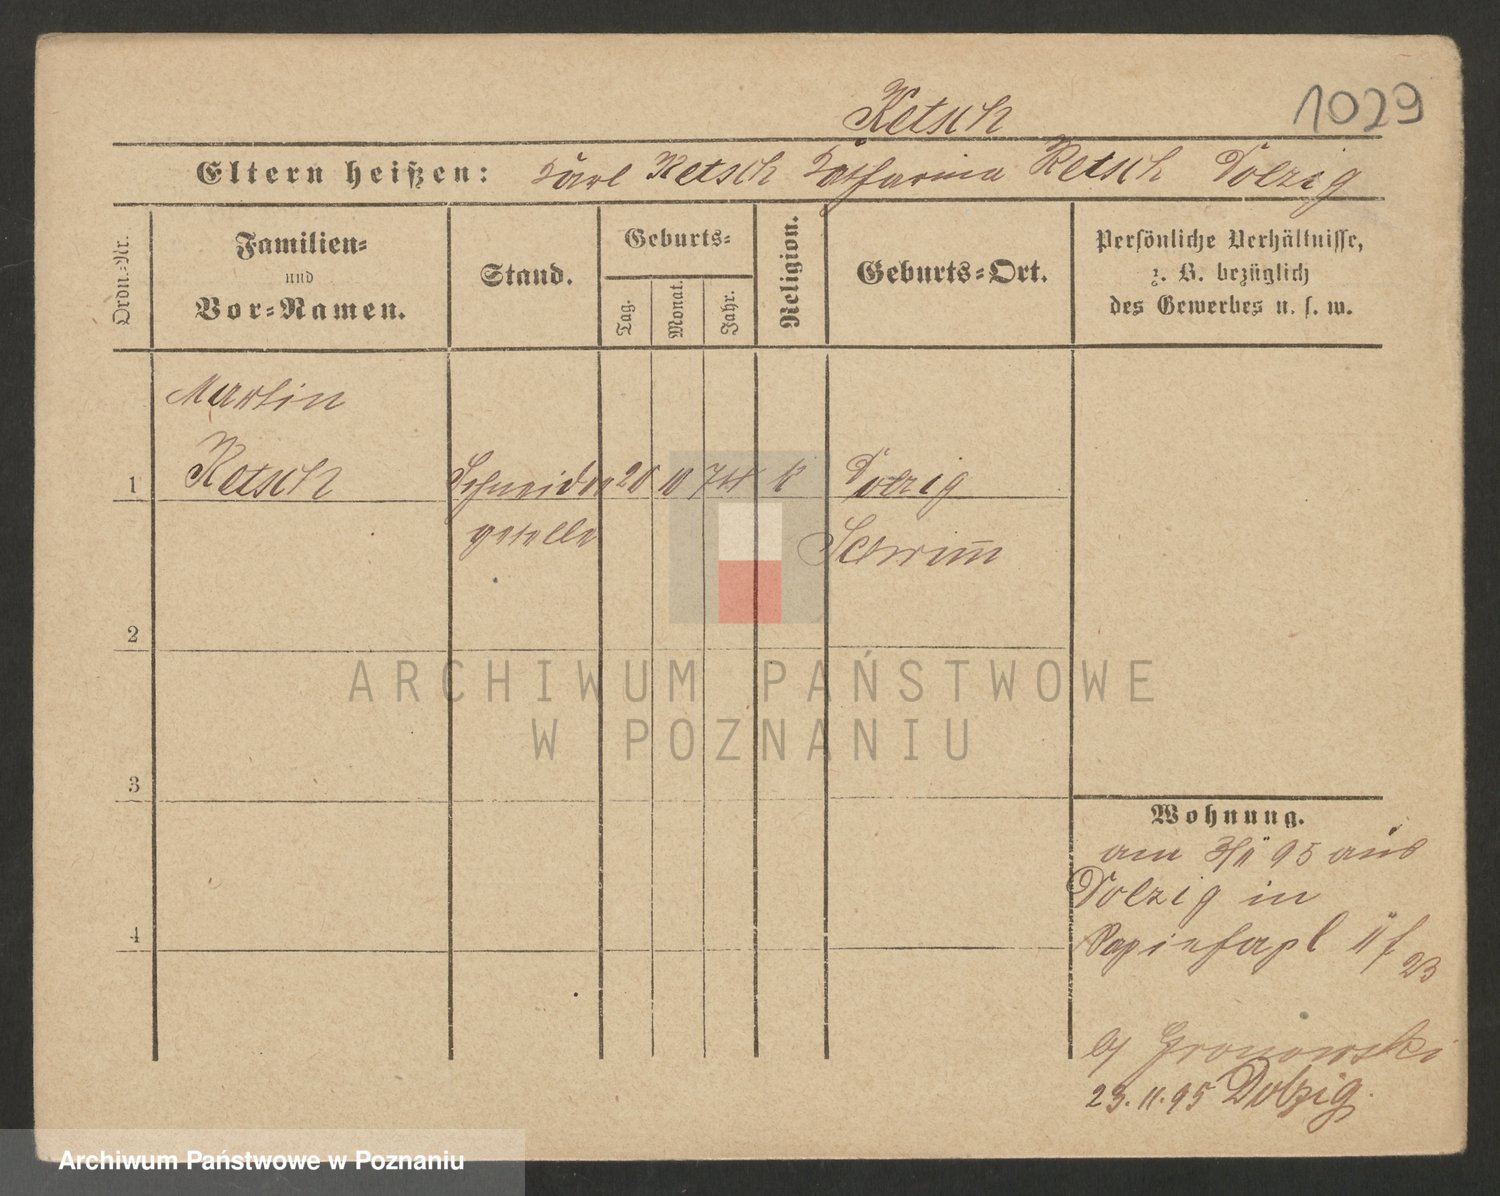 1029
Ketsch
Eltern heißen: Karl Ketsch Katharina Ketsch Dolzig
Ordn.-Nr.
Familien-
und
Vor-Namen.
Stand.
Geburts-
Tag.
Monat.
Jahr.
Religion.
Geburts-Ort.
Persönliche Verhältnisse,
z. B. bezüglich
des Gewerbes u. s. w.
Martin
1 Ketsch Schneider 10 74 k Dolzig
geselle Schrimm
2
ARCHIWUM PAŃSTWOWE
W POZNANIU
3
Wohnung.
am 95 aus
Dolzig in
4
23
b/ Gronowski
23.11.95 Dolzig.
Archiwum Państwowe w Poznaniu